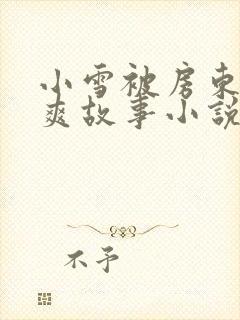 小雪被房东
爽故事小説
不予